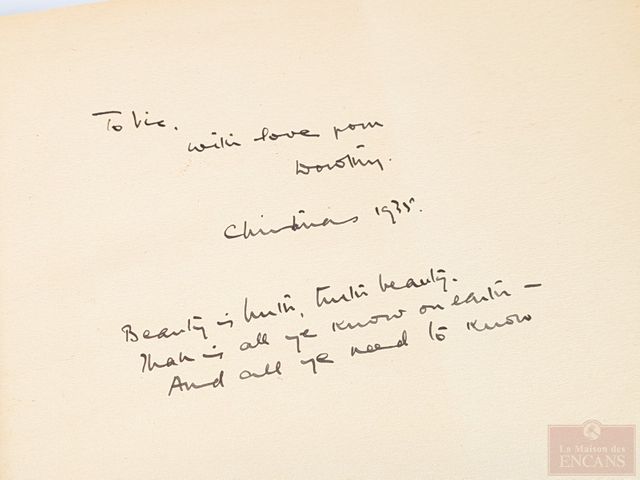 To Vic.
with love from
Dorothy.
Christmas 1935.
Beauty is truth, truth beauty.
That is all ye know on earth —
And all ye need to know
La Maison des
ENCANS